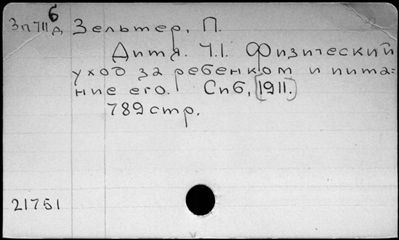 б
3п711д, Зельтер, П.
Дитя. Ч.I. Физический
уход за ребенком и пита=
ние его. Спб, [1911.]
789 стр.
21751